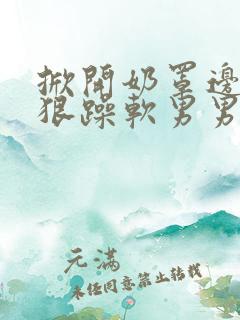 掀開奶罩邊
狠躁軟男男
元滿
未任同意禁止转载